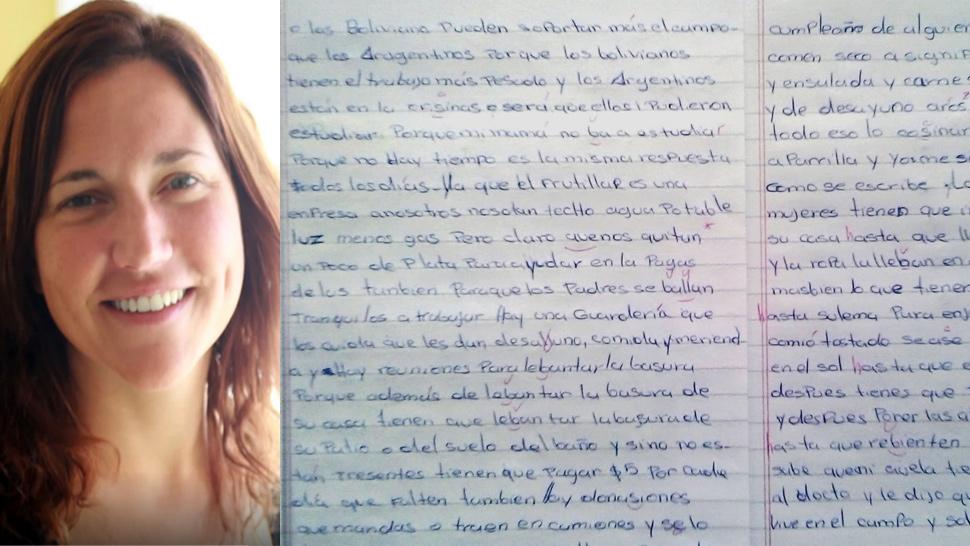 o las Boliviana Pueden soportar más el campo
que los Aragentinos Porque los bolivianos
tienen el trabajo más Pescado y los Argentinos
están en la ofisinas o será que ellos Pudieron
estudiar Porque mi mamá no ba a estudiar
Porque no Hay tiempo es la misma respuesta
todos los días Ya que El Frutillar es una
enpresa anosotros nos dan techo agua Potable
luz menos gas Pero claro quenos quitan
un Poco de Plata Para ayudar en la Pagas
de lus tanbien Paraque los Padres se ballan
tranquilos a trabajar Hay una Guardería que
los cuida que les dan desayuno, comida y meriend
a y Hay reuniones Para lebantar la basura
Porque además de lebantar la basura de
su casa tienen que lebantar la basura de
su Patio o del suelo del baño y si no es-
tan Presentes tienen que Pagar $5 Por cada
día que Falten tambien Hay donasiones
que mandas o traen en camiones y se lo
cumpleaño de alguien
comen seco a signif
y ensalada y carnes
y de desayuno
todo eso lo cosinar
a Parrilla y
como se escribe
mujeres tienen que
su casa hasta que
y la ropa la lleban en
masbien lo que tiener
Hasta
como tostado
en el sol hasta que
despues tienes que
y desPues Poner las
hasta que rebienten
sube
al docto y le dijo qu
vive en el campo y